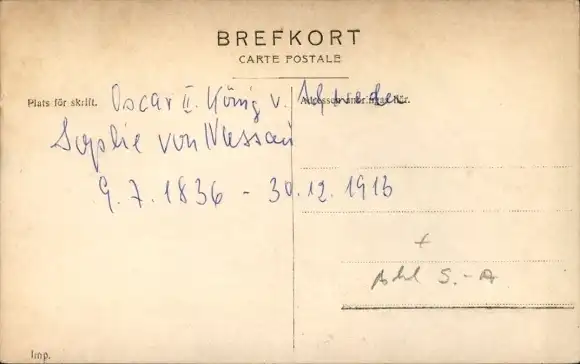 BREFKORT
CARTE POSTALE
Plats för skrift.
Oscar II. König v. Schweden
Sophie von Nassau
9.7.1836 - 30.12.1913
+
S.-A
Imp.